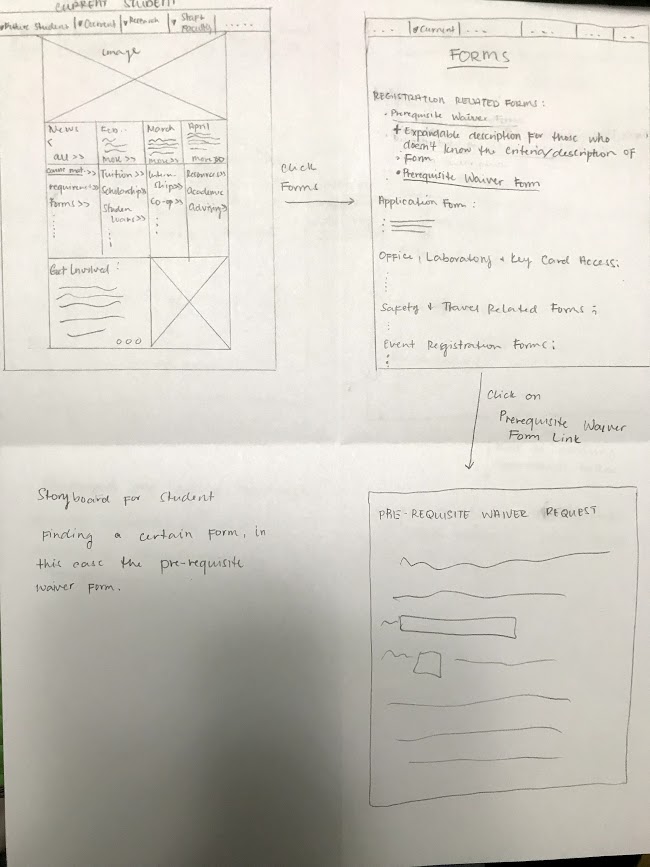 CURRENT STUDENT
Future Student
Current
Research
Staff
Faculty
.....
image
News
<
all >>
Feb..
more >>
March
more >>
April
more >>
requirements >>
Forms >>
Tuition >>
Scholarships >>
Student
Intern-
ships >>
co-op >>
Resources >>
Academic
Advising >>
Get Involved :
click
Forms
...
Current
...
...
...
..
FORMS
REGISTRATION RELATED FORMS :
• Prerequisite Waiver
+ Expandable description for those who
doesn't know the criteria/description of
Form
• Prerequisite Waiver Form
Application Form :
Office, Laboratory & Key Card Access:
Safety & Travel Related Forms :
Event Registration Forms :
Click on
Prerequisite Waiver
Form Link
Storyboard for student
Finding a certain form, in
this case the pre-requisite
waiver form.
PRE-REQUISITE WAIVER REQUEST